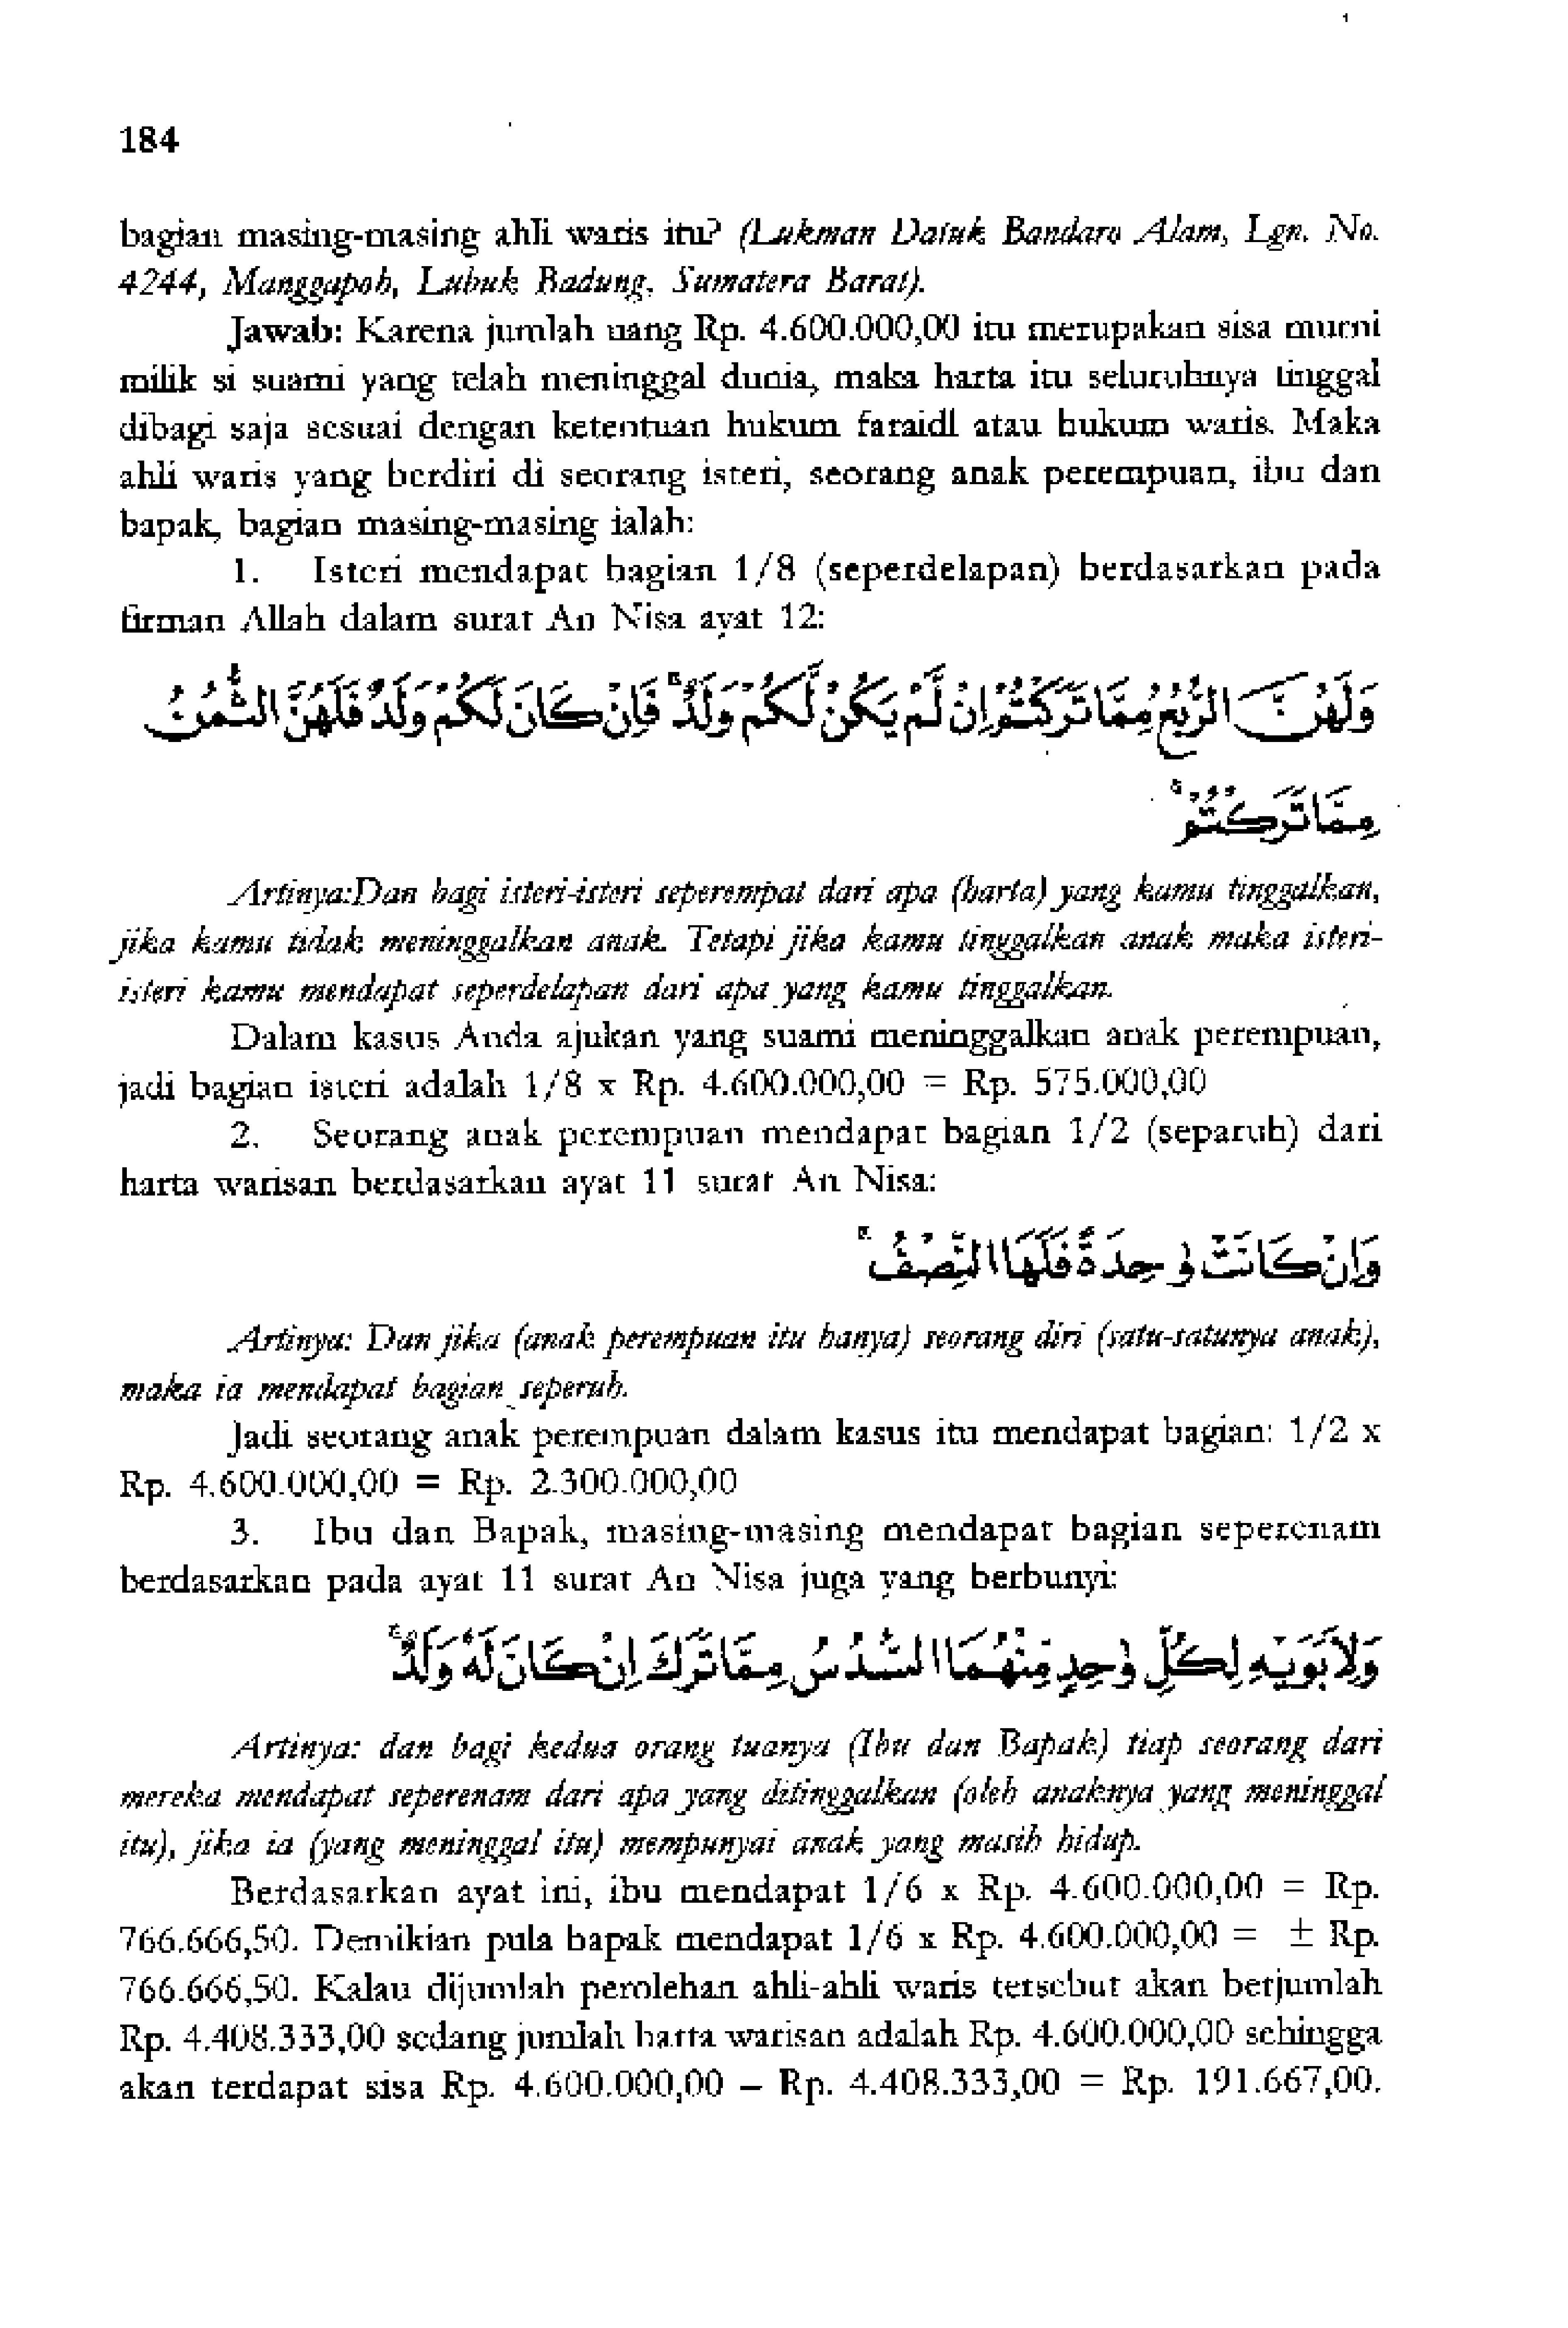 184
bagian masing-masing ahli waris itu? (Lukman Datuk Bandaro Alam, Lgn. No.
4244, Manggapoh, Lubuk Badung, Sumatera Barat).
Jawab: Karena jumlah uang Rp. 4.600.000,00 itu merupakan sisa murni
milik si suami yang telah meninggal dunia, maka harta itu seluruhnya tinggal
dibagi saja sesuai dengan ketentuan hukum faraidl atau hukum waris. Maka
ahli waris yang berdiri di seorang isteri, seorang anak perempuan, ibu dan
bapak, bagian masing-masing ialah:
1. Isteri mendapat bagian 1/8 (seperdelapan) berdasarkan pada
firman Allah dalam surat An Nisa ayat 12:
وَلَهُنَّ الرُّبُعُ مِمَّا تَرَكْتُمْ اِنْ لَّمْ يَكُنْ لَّكُمْ وَلَدٌ ۚ فَاِنْ كَانَ لَكُمْ وَلَدٌ فَلَهُنَّ الثُّمُنُ
مِمَّا تَرَكْتُمْ ۚ
Artinya:Dan bagi isteri-isteri seperempat dari apa (harta) yang kamu tinggalkan,
jika kamu tidak meninggalkan anak. Tetapi jika kamu tinggalkan anak maka isteri-
isteri kamu mendapat seperdelapan dari apa yang kamu tinggalkan.
Dalam kasus Anda ajukan yang suami meninggalkan anak perempuan,
jadi bagian isteri adalah 1/8 x Rp. 4.600.000,00 = Rp. 575.000,00
2. Seorang anak perempuan mendapat bagian 1/2 (separuh) dari
harta warisan berdasarkan ayat 11 surat An Nisa:
وَاِنْ كَانَتْ وٰحِدَةً فَلَهَا النِّصْفُ ۚ
Artinya: Dan jika (anak perempuan itu hanya) seorang diri (satu-satunya anak),
maka ia mendapat bagian seperuh.
Jadi seorang anak perempuan dalam kasus itu mendapat bagian: 1/2 x
Rp. 4.600.000,00 = Rp. 2.300.000,00
3. Ibu dan Bapak, masing-masing mendapat bagian seperenam
berdasarkan pada ayat 11 surat An Nisa juga yang berbunyi:
وَلِاَبَوَيْهِ لِكُلِّ وٰحِدٍ مِّنْهُمَا السُّدُسُ مِمَّا تَرَكَ اِنْ كَانَ لَهٗ وَلَدٌ ۚ
Artinya: dan bagi kedua orang tuanya (Ibu dan Bapak) tiap seorang dari
mereka mendapat seperenam dari apa yang ditinggalkan (oleh anaknya yang meninggal
itu), jika ia (yang meninggal itu) mempunyai anak yang masih hidup.
Berdasarkan ayat ini, ibu mendapat 1/6 x Rp. 4.600.000,00 = Rp.
766.666,50. Demikian pula bapak mendapat 1/6 x Rp. 4.600.000,00 = ± Rp.
766.666,50. Kalau dijumlah perolehan ahli-ahli waris tersebut akan berjumlah
Rp. 4.408.333,00 sedang jumlah harta warisan adalah Rp. 4.600.000,00 sehingga
akan terdapat sisa Rp. 4.600.000,00 – Rp. 4.408.333,00 = Rp. 191.667,00.